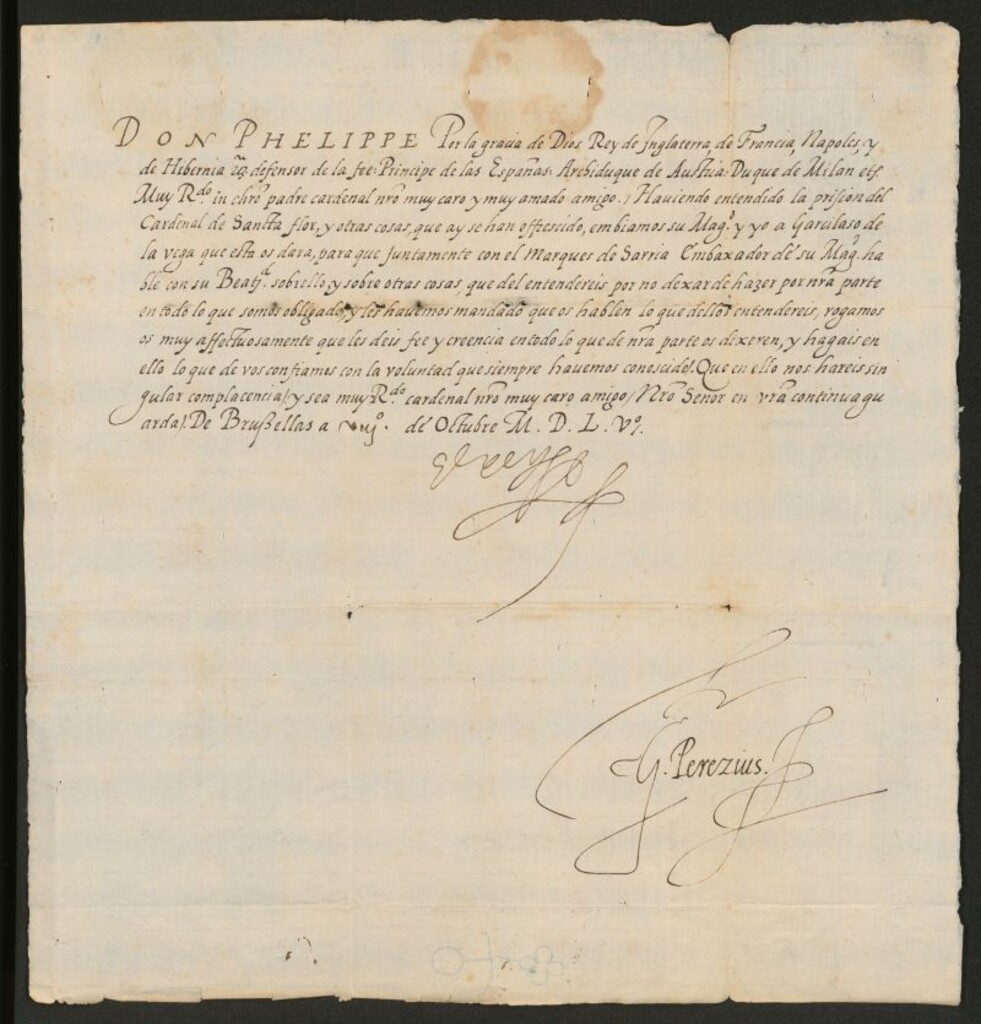 DON PHELIPPE Por la gracia de Dios Rey de Inglaterra, de Francia, Napoles, y
de Hibernia defensor de la fee: Principe de las Españas: Archiduque de Austria: Duque de Milan etc.
Muy R.do in chro padre cardenal nro muy caro y muy amado amigo. / Haviendo entendido la prision del
Cardenal de Sancta flor, y otras cosas, que ay se han offrescido, embiamos su Mag.d y yo a Garcilaso de
la vega que esta os dara, para que juntamente con el Marques de Sarria Embaxador de su Mag.d ha
ble con su Beat.d sobrello, y sobre otras cosas, que del entendereis por no dexar de hazer por nra parte
en todo lo que somos obligado, y les havemos mandado que os hablen lo que dellos entendereis, rogamos
os muy affectuosamente que les deis fee y creencia en todo lo que de nra parte os dixeren, y hagais en
ello lo que de vos confiamos con la voluntad que siempre havemos conoscido. Que en ello nos hareis sin
gular complacencia / y sea muy R.do cardenal nro muy caro amigo / Nro Señor en vra continua gu
arda /. De Brußellas a viij. de Octubre M. D. L. Vº.
G. Perezius.